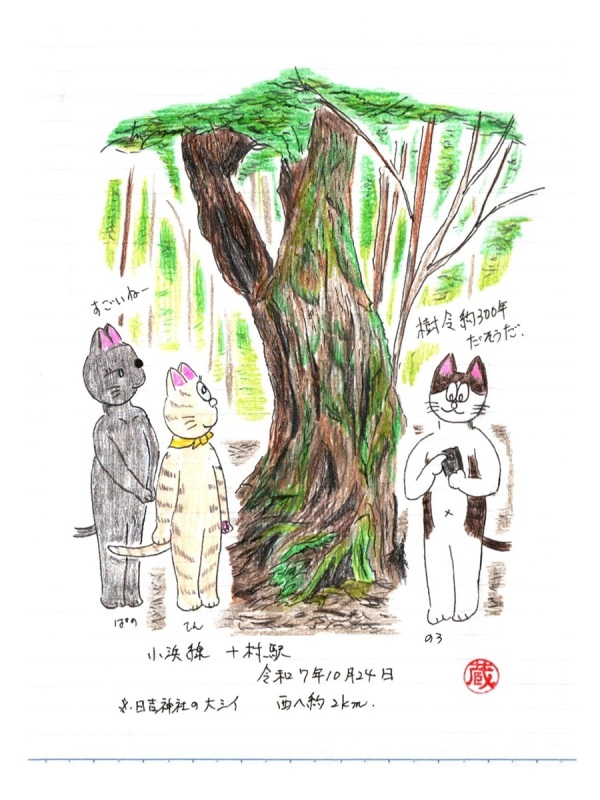 すごいねー
樹令約300年
だそうだ.
ぱの
てん
のろ
小浜線 十村駅
令和7年10月24日
※.日吉神社の大シイ 西へ約2km.
蔵